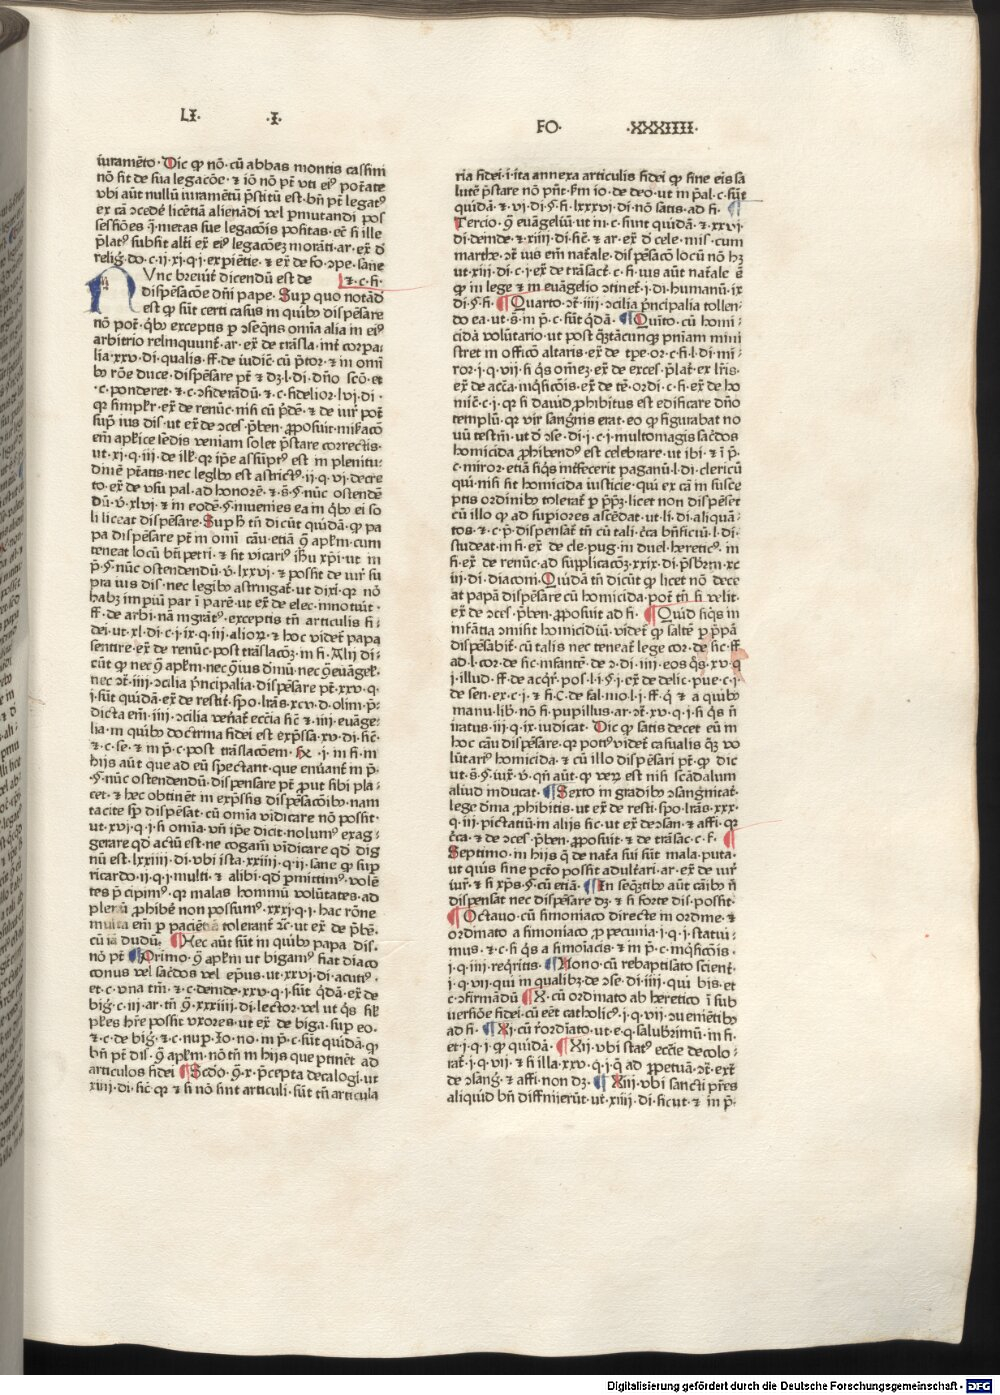 LI· ·I·
FO· ·XXXIIII·
iuramēto· Dic ꝙ nō· cū abbas montis cassini
nō sit de sua legacōe· ⁊ iō nō pt̄ vti eiꝰ pot̄ate
vbi aūt nullū iuramētū p̄stitū est· bn̄ pt̄ legatꝰ
ex cā ↄcedē licētiā alienādi vel ꝑmutandi pos
sessiões
religͥ· do· c· ij· xj· q· j·
Nvnc breuit̄ dicendū est de
dispēsacōe dn̄i pape· Sup quo notād
est ꝙ sūt certi casus in quibꝰ dispēsare
nō pot̄· qͥbꝰ exceptis ꝑ ↄseqn̄s omīa alia in eiꝰ
arbitrio relinquunt̄· ar· ex̄ de trāsla· int̄ corpa·
lia· xxv· di· qualis· ff· de iudic̄· cū p̄tor· ⁊ in omī
bꝰ rōe duce· dispēsare pt̄ ⁊ dꝫ· l· di· dn̄o
·c· ponderet· ⁊ ·c· ↄsiderādū· ⁊ c· fidelior· lvj· di·
em̄ aplīce sedis veniam solet p̄stare correctis·
ut· xj· q· iij· de ill· qꝛ ip̄e assūptꝰ est in plenitu·
dinē pt̄atis· nec legibꝰ est astrictꝰ· ij· q· vj· decre
to· ex̄ de vsu pal· ad honorē· ⁊ s̄· §· nūc ostendē
dū· v̄· xlvi· ⁊ in eodē· § inuenies ea in qͥbꝰ ei so
li liceat dispēsare· Sup h̄ tn̄ dicūt quidā· ꝙ pa
pa dispēsare pt̄ in omī cāu· etiā ꝯ̄ aplm̄· cum
teneat locū bt̄i petri· ⁊ sit vicariꝰ ih̄u xp̄i· ut in
p̄· §· nūc ostendendū· v̄· lxxvi· ⁊ possit de iur̄ su
pra ius dis· nec legibꝰ astringat̄· ut dixi· qꝛ nō
habꝫ impiū par ī parē· ut ex̄ de elec· innotuit·
ff· de arbi· nā mgratꝰ· exceptis tn̄ articulis fi·
dei· ut· xl· di· c· j· ix· q· iij· alioꝝ· ⁊ hoc videt̄ papa
sentire· ex̄ de renūc· post trāslacōꝫ· in fi· Alij di·
cūt ꝙ nec ꝯ̄ aplm̄· nec ꝯ̄ ius dinū· nec ꝯ̄ euāgel·
nec ↄt̄· iiij· ↄcilia p̄ncipalia· dispēsare pt̄· xxv· q·
j· sūt quidā· ex̄ de restit̄· spo· lr̄as· xcv· d· olim· p̄·
dicta em̄· iiij· ↄcilia ven̄at̄ ecc̄ia sic̄ ⁊ iiij· euāge·
lia· in quibꝰ doctrina fidei est exp̄ssa· xv· di· sic̄·
⁊ ·c· se· ⁊ in p̄· c· post trāslacōem·
hijs aūt que ad eū spectant· que enūant̄ in p̄·
§· nūc ostendendū· dispensare pt̄ ꝓut sibi pla·
cet· ⁊ hec obtinēt in exp̄ssis dispēsacōibꝰ· nam
tacite sp̄ dispēsat̄· cū omīa vidicare nō possit·
ut· xvj· q· j· si omīa· vn̄ ip̄e dicit· nolumꝰ exag·
gerare qd̄ actū est· ne cogam̄ vidicare qd̄ dig
nū est· lxxiiij· di· vbi ista· xxiiij· q· ij· sane ꝙ sup
ricardo· ij· q· j· multi· ⁊ alibi· qd̄ ꝑmittimꝰ· volē
tes p̄cipimꝰ· qꝛ malas hominū volūtates· ad
plenū ꝓhibē non possumꝰ· xxxj· q· j· hac rōne
multa em̄ ꝑ pacienā tolerant̄ ⁊c· ut ex̄ de p̄bē·
cū iā dudū· ¶ Hec aūt sūt in quibꝰ papa dis·
nō pt̄· ¶ Primo· ꝯ̄ aplm̄ ut bigamꝰ fiat diaco
conus vel sac̄dos vel ep̄us· ut· xxvj· di· acutiꝰ·
et· c· vna tm̄· ⁊ ·c· deinde· xxv· q· j· sūt qͥdā· ex̄ de
biḡ· c· iij· ar· tn̄ ꝯ̄· xxxiiij· di· lector· vel ut qͥs sil
pl̄res hr̄e possit vxores· ut ex̄ de biga· sup eo·
⁊ ·c· de biḡ· ⁊ ·c· nup· no· in p̄· c· sūt quidā· ꝙ
bn̄ pt̄ dis· ꝯ̄ aplm̄· nō tn̄ in hijs que ꝑtinēt ad
articulos fidei ¶ Scdo· ꝯ̄· x· p̄cepta decalogi· ut
xiiij· di· sic̄· qꝛ ⁊ si nō sint articuli· sūt tn̄ articula
ria fidei· j· ita annexa articulis fidei ꝙ sine eis sa
lutē p̄stare nō pn̄t· s̄m io· de deo· ut in p̄al· c· sūt
quidā· ⁊ ·vj· di· §· fi· lxxxvi· di· nō satis· ad fi· ¶
Tercio· ꝯ̄ euāgeliū· ut in· c· sunt quidā· ⁊ xxvj·
di· deinde· ⁊ ·xiiij· di· sic̄· ⁊ ar· ex̄ d̄ cele· mis· cum
marthe· ↄt̄ ius em̄ nat̄ale· dispēsacō locū nō hꝫ
ut· xiij· di· c· j· ex̄ de trāsact̄· c· fi· ius aūt nat̄ale ē
ꝙ in lege ⁊ in euāgelio ↄtinet̄· j· di· humanū· ix
di· §· fi· ¶ Quarto· ↄt̄· iiij· ↄcilia p̄ncipalia tollen·
do ea· ut· s̄· in p̄· c· sūt qͥdā· ¶ Quīto· cū homi·
cidā volūtario· ut post qͣꝫtācunqꝫ pniam mini
stret in officō altaris· ex̄ de tpe· or· c· fi· l· di· mī·
ror· j· q· vij· si qͥs om̄eꝫ· ex̄ de exces· p̄lat̄· ex lr̄is·
ex̄ de acc̄a· inqͥsicōis· ex̄ de tē· ordi· c· fi· ex̄ de ho
mic̄· c· j· qꝛ si dauid ꝓhibitus est edificare dn̄o
templū· qꝛ vir sangͥnis erat· eo ꝙ figurabat no
uū testm̄· ut d̄ ↄse· di· j· c· j· multomagis sac̄dos
homicida ꝓhibendꝰ est celebrare· ut ibi· ⁊ ī p̄·
c· miror· etiā siqͥs int̄fecerit paganū· l· di· clericū
qui· nisi sit homicida iusticie· qui ex cā in susce
ptis ordinibꝰ tolerat̄ ꝑ p̄pꝫ· licet non dispēset̄
cū illo ꝙ ad supiores ascēdat· ut· li· di· aliquā·
tos· ⁊ ·c· p̄· dispensat̄ tn̄ cū tali· c̄ca bn̄ficiū· l· di·
studeat· in fi· ex̄ de cle· pug· in duel· hereticꝰ· in
fi· ex̄ de renūc· ad supplicacōꝫ· xxix· di· p̄sbrm̄· xc
iij· di· diaconi· Quidā tn̄ dicūt ꝙ licet nō dece
at papā dispēsare cū homicida· pot̄ tn̄ si velit·
ex̄ de ↄces· p̄ben· ꝓposuit· ad fi· ¶ Quid siqͥs in
infātia ↄmisit homicidiū· videt̄ ꝙ saltē ꝑ p̄pā
dispēsabit̄· cū talis nec teneat̄ lege cor· de sic· ff·
ad· l· cor· de sic· infantē· de ↄ· di· iiij· eos qͥs· xv· q·
j· illud· ff· de acqͥr· pos· l· j· §· j· ex̄ de delic· pue· c· j·
de sen· ex· c· j· ⁊ fi· C· de fal· mo· l· j· ff· qͥ ⁊ a quibꝰ
manu· lib· nō fi· pupillus· ar· ↄt̄· xv· q· j· si qͥs n̄
iratus· iij· q· ix· iudicat· Dic ꝙ satis decet eū in
hoc cāu dispēsare· qꝛ potiꝰ videt̄ casualis qͣꝫ vo
lūtariꝰ homicida· ⁊ cū illo dispēsari pt̄· ꝙ dic
ut· s̄· §· iur̄· v̄· qn̄ aūt· ꝙ veꝝ est nisi scādalum
aliud inducat· ¶ Sexto in gradibꝰ ↄsangͥnitat̄·
lege dīna ꝓhibitis· ut ex̄ de resti· spo· lr̄as· xxx·
q· iij· pictatiū· in alijs sic· ut ex̄ de ↄsan· ⁊ affi· qꝛ
c̄ca· ⁊ de ↄces· p̄ben· ꝓposuit· ⁊ de trāsac· c· f· ¶
Septimo· in hijs q̄ de nat̄a sui sūt mala· puta·
ut quis sine pct̄o possit adult̄ari· ar· ex̄ de iur̄
iur̄· ⁊ si xp̄s· §· cū etiā· ¶ In seqn̄tibꝰ aūt cāibꝰ n̄
dispensat nec dispēsare dꝫ· ⁊ si forte dis· possit·
¶ Octauo· cū simoniaco directe in ordine· ⁊
ordinato a simoniaco ꝓ pecunia· j· q· j· statui·
mus· ⁊ ·c· si qͥs a simoīacis· ⁊ in p̄· c· inqͥsicōis·
j· q· iiij· reqͥritis· ¶ Nono· cū rebaptisato scient̄·
j· q· vij· qui in qualibꝫ· de ↄse· di· iiij· qui bis· et
c· ↄfirmādū ¶ X· cū ordinato ab heretico ī sub
uersiōe fidei· cū eēt catholicꝰ· j· q· vij· ↄuenientibꝰ
ad fi· ¶ Xj· cū r̄ordīato· ut· e· q· salubrimū· in fi·
et· j· q· j· ꝙ quidā· ¶ Xij· vbi statꝰ ecc̄ie decolo·
rat̄· j· q· vij· ⁊ si illa· xxv· q· j· q̄ ad ꝑpetuā· ↄt̄· ext̄
de ↄsanḡ· ⁊ affi· non dꝫ· ¶ Xiij· vbi sancti p̄res
aliquid bn̄ diffinierūt· ut· xiiij· di· sicut· ⁊ in p̄·
Digitalisierung gefördert durch die Deutsche Forschungsgemeinschaft - DFG